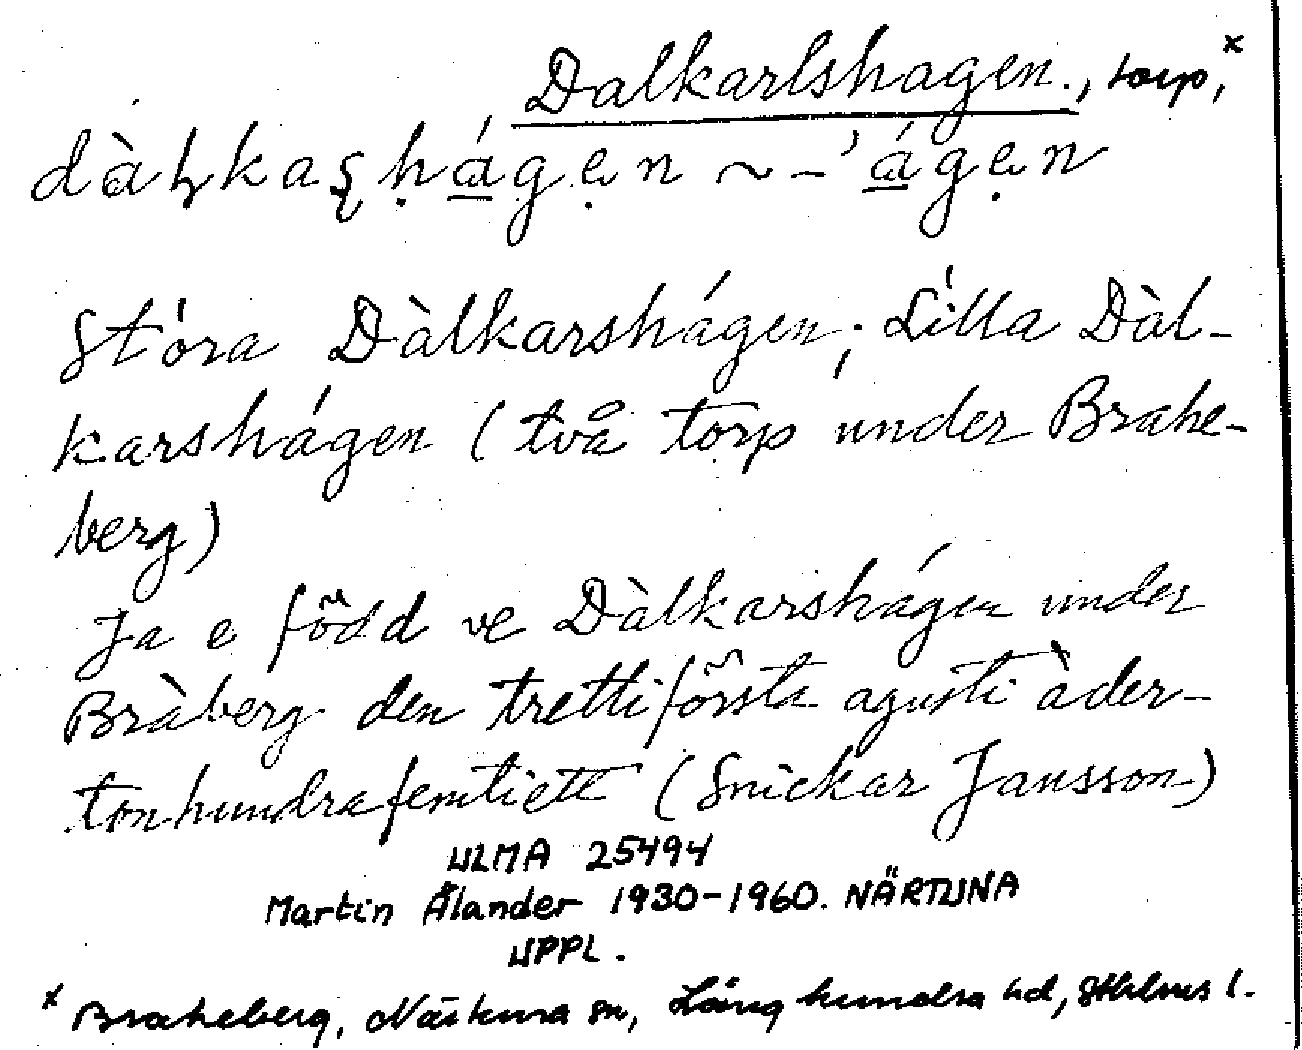 Dalkarlshagen., torp, x
dàḷkaʂḥágẹn ~ -'ágẹn
Stóra Dàlkarshágen; Lílla Dàl-
karshágen (två torp under Brahe-
berg)
Ja e född ve Dàlkarshágen under
Bràberg den trettiförsta agusti àder-
tonhundrafemtiett (Snickar Jansson)
ULMA 25494
Martin Ålander 1930-1960. NÄRTUNA
UPPL.
x Braheberg, Närtuna sn, Långhundra hd, Sthlms l.